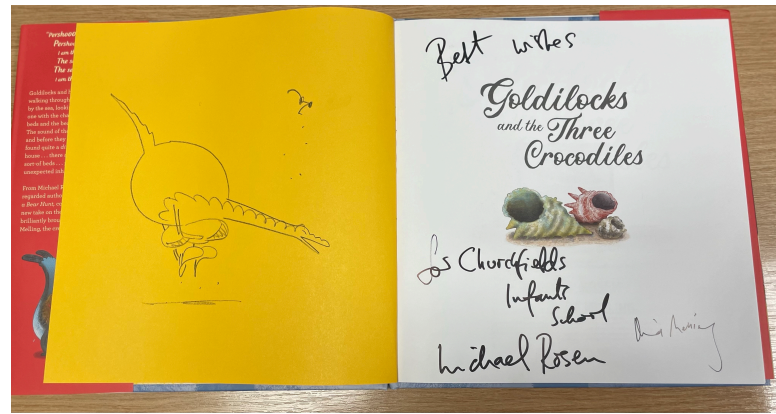 "Pershooo
Goldilocks and
walking through
by the sea, looki
one with the cha
beds and the be
The sound of the
and before they
found quite a
house . . . there
sort of beds . . .
unexpected inh
From Michael R
regarded autho
a Bear Hunt, co
new take on the
brilliantly brou
Melling, the cr
Best wishes
Goldilocks
and the Three
Crocodiles
for Churchfields
Infants
School
Michael Rosen